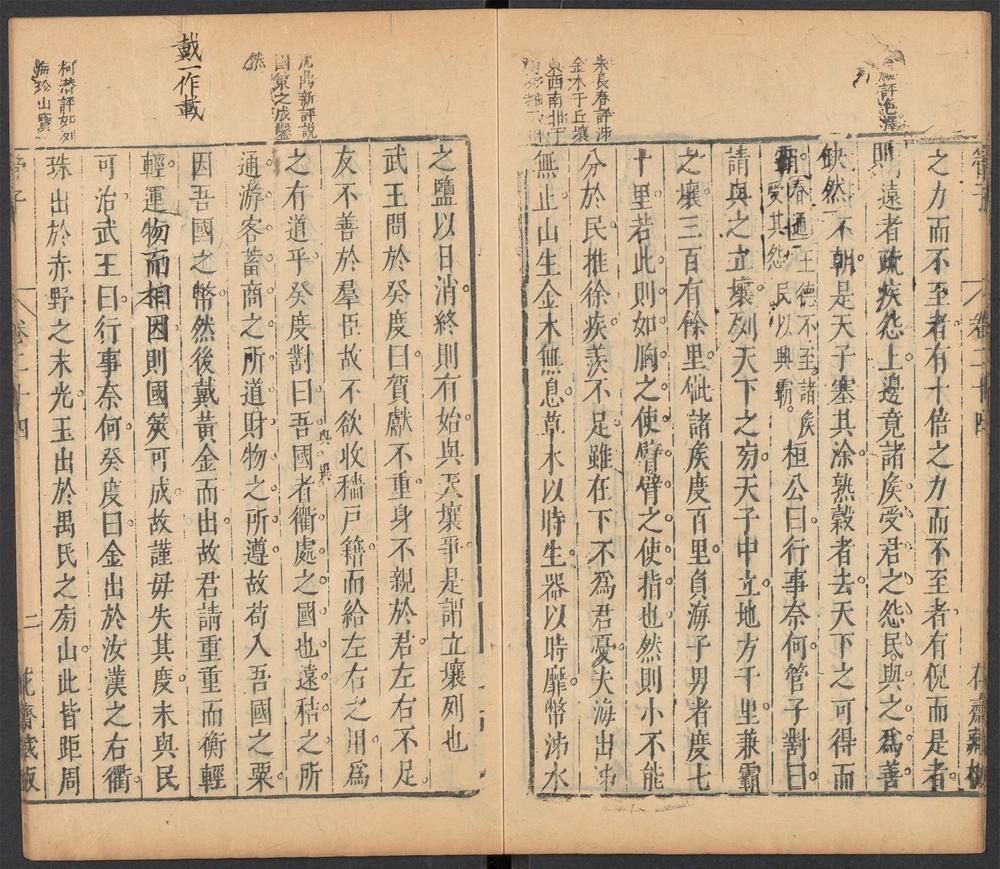 管子
卷二十四
之力而不至者有十倍之力而不至者有倪而是者
開遠者疏疾怨上邊竟諸侯受君之怨民與之爲善
缺然不朝是天子塞其涂熟穀者去天下之可得而
霸
春通
王德不至諸侯
受其怨民以興霸
桓公曰行事奈何管子對曰
請與之立壤列天下之旁天子中立地方千里兼霸
之壤三百有餘里佌諸侯度百里負海子男者度七
十里若此則如胸之使臂臂之使指也然則小不能
分於民推徐疾羨不足雖在下不爲君憂夫海出泲
無止山生金木無息草木以時生器以時靡幣泲水
朱長春評泲
金木于丘壤
東西南北于
之鹽以日消終則有始與天壤爭是謂立壤列也
武王問於癸度曰賀獻不重身不親於君左右不足
友不善於羣臣故不欲收穡戶籍而給左右之用爲
之有道乎癸度對曰吾國者衢處之國也遠秸之所
通游客蓄商之所道財物之所遵故苟入吾國之粟
因吾國之幣然後戴黃金而出故君請重重而衡輕
輕運物而相因則國筴可成故謹毋失其度未與民
可治武王曰行事奈何癸度曰金出於汝漢之右衢
珠出於赤野之末光玉出於禺氏之旁山此皆距周
沈鼎新評說
國策之成鑿
然
戴一作載
柯潛評如列
海珍山寶
管子
卷二十四
二
花齋藏板